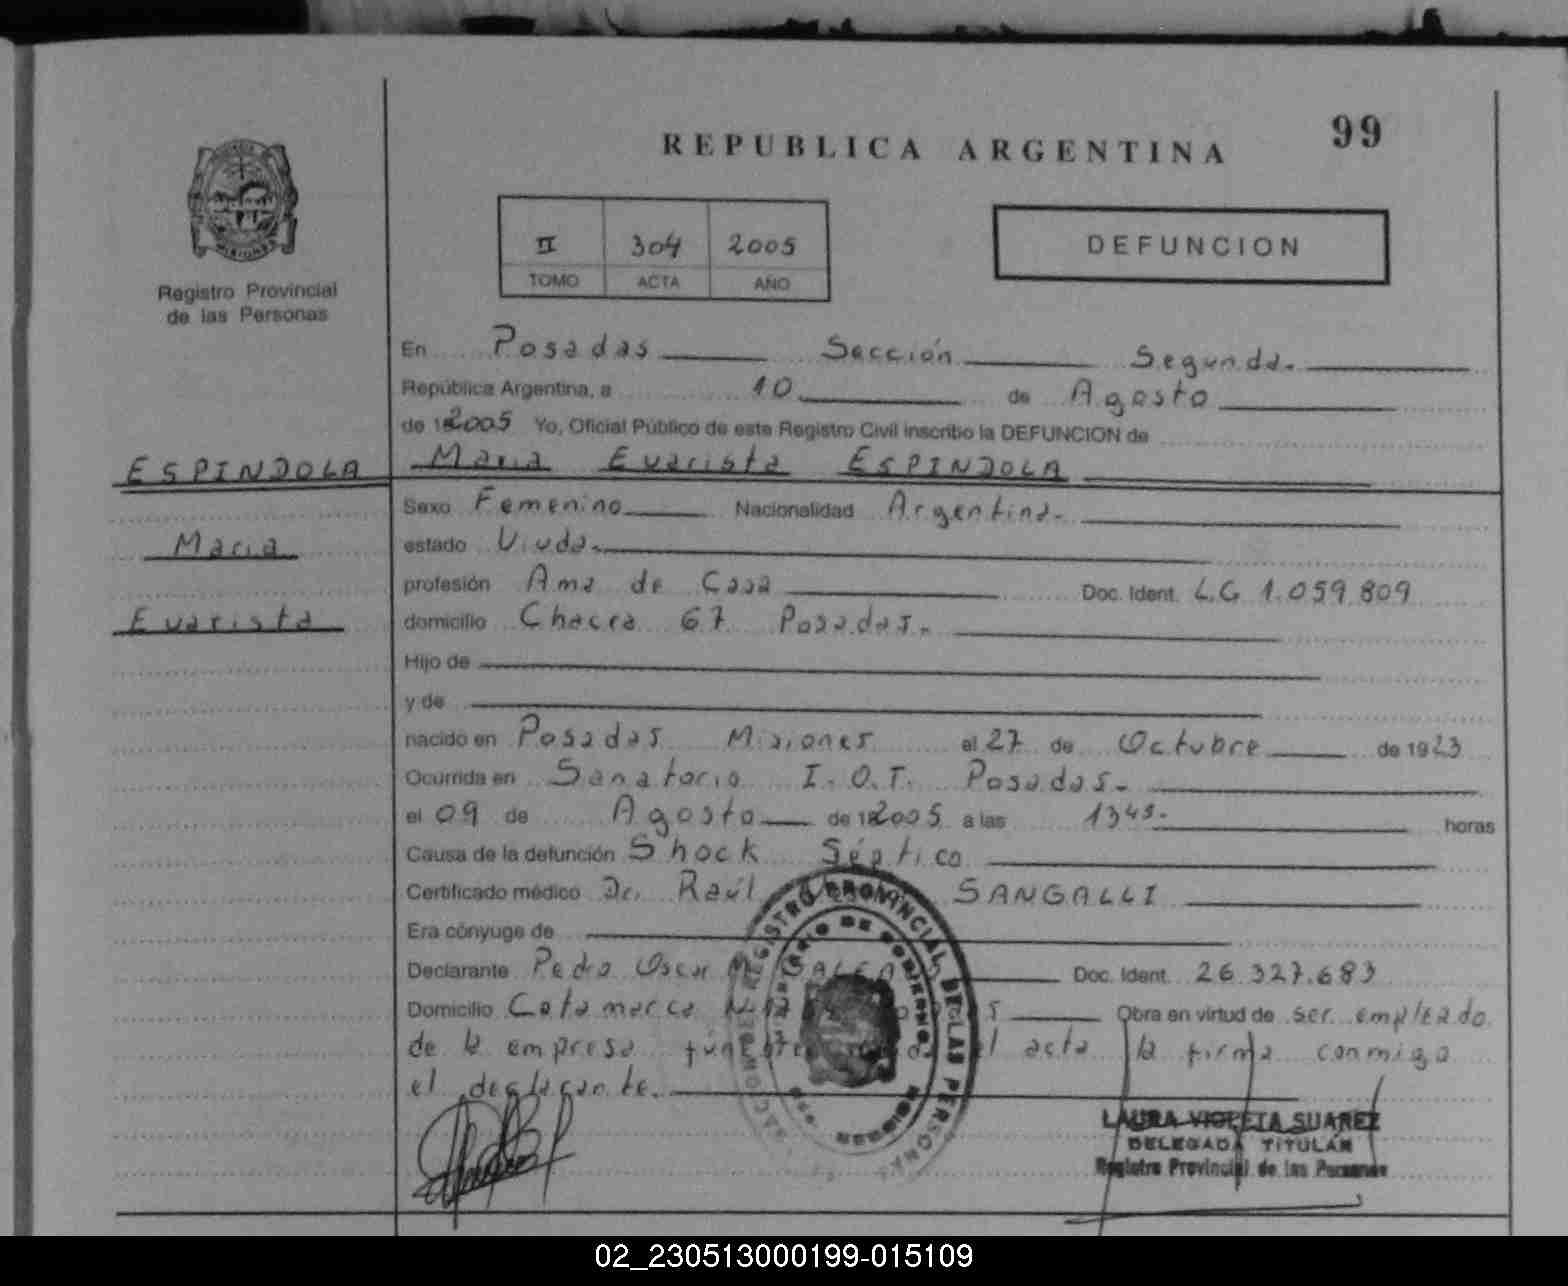 99
REPUBLICA ARGENTINA
II 304 2005
TOMO ACTA AÑO
DEFUNCION
MISIONES
Registro Provincial
de las Personas
En Posadas Sección Segunda.
República Argentina, a 10 de Agosto
de 2005 Yo, Oficial Público de este Registro Civil inscribo la DEFUNCION de
ESPINDOLA Maria Evarista ESPINDOLA
Sexo Femenino Nacionalidad Argentina.
Maria estado Viuda.
profesión Ama de Casa Doc. Ident. L.C 1.059.809
Evarista domicilio Chacra 67 Posadas.
Hijo de
y de
nacido en Posadas Misiones el 27 de Octubre de 1923
Ocurrida en Sanatorio I.O.T. Posadas.
el 09 de Agosto de 2005 a las 1345. horas
Causa de la defunción Shock Séptico
Certificado médico Dr. Raúl SANGALLI
Era cónyuge de
Declarante Pedro Oscar Doc. Ident. 26.327.683
Domicilio Catamarca Obra en virtud de ser empleado
de la empresa acta la firma conmigo
el declarante.
REGISTRO PROVINCIAL DE LAS PERSONAS
LAURA VIOLETA SUAREZ
DELEGADA TITULAR
Registro Provincial de las Personas
02_230513000199-015109